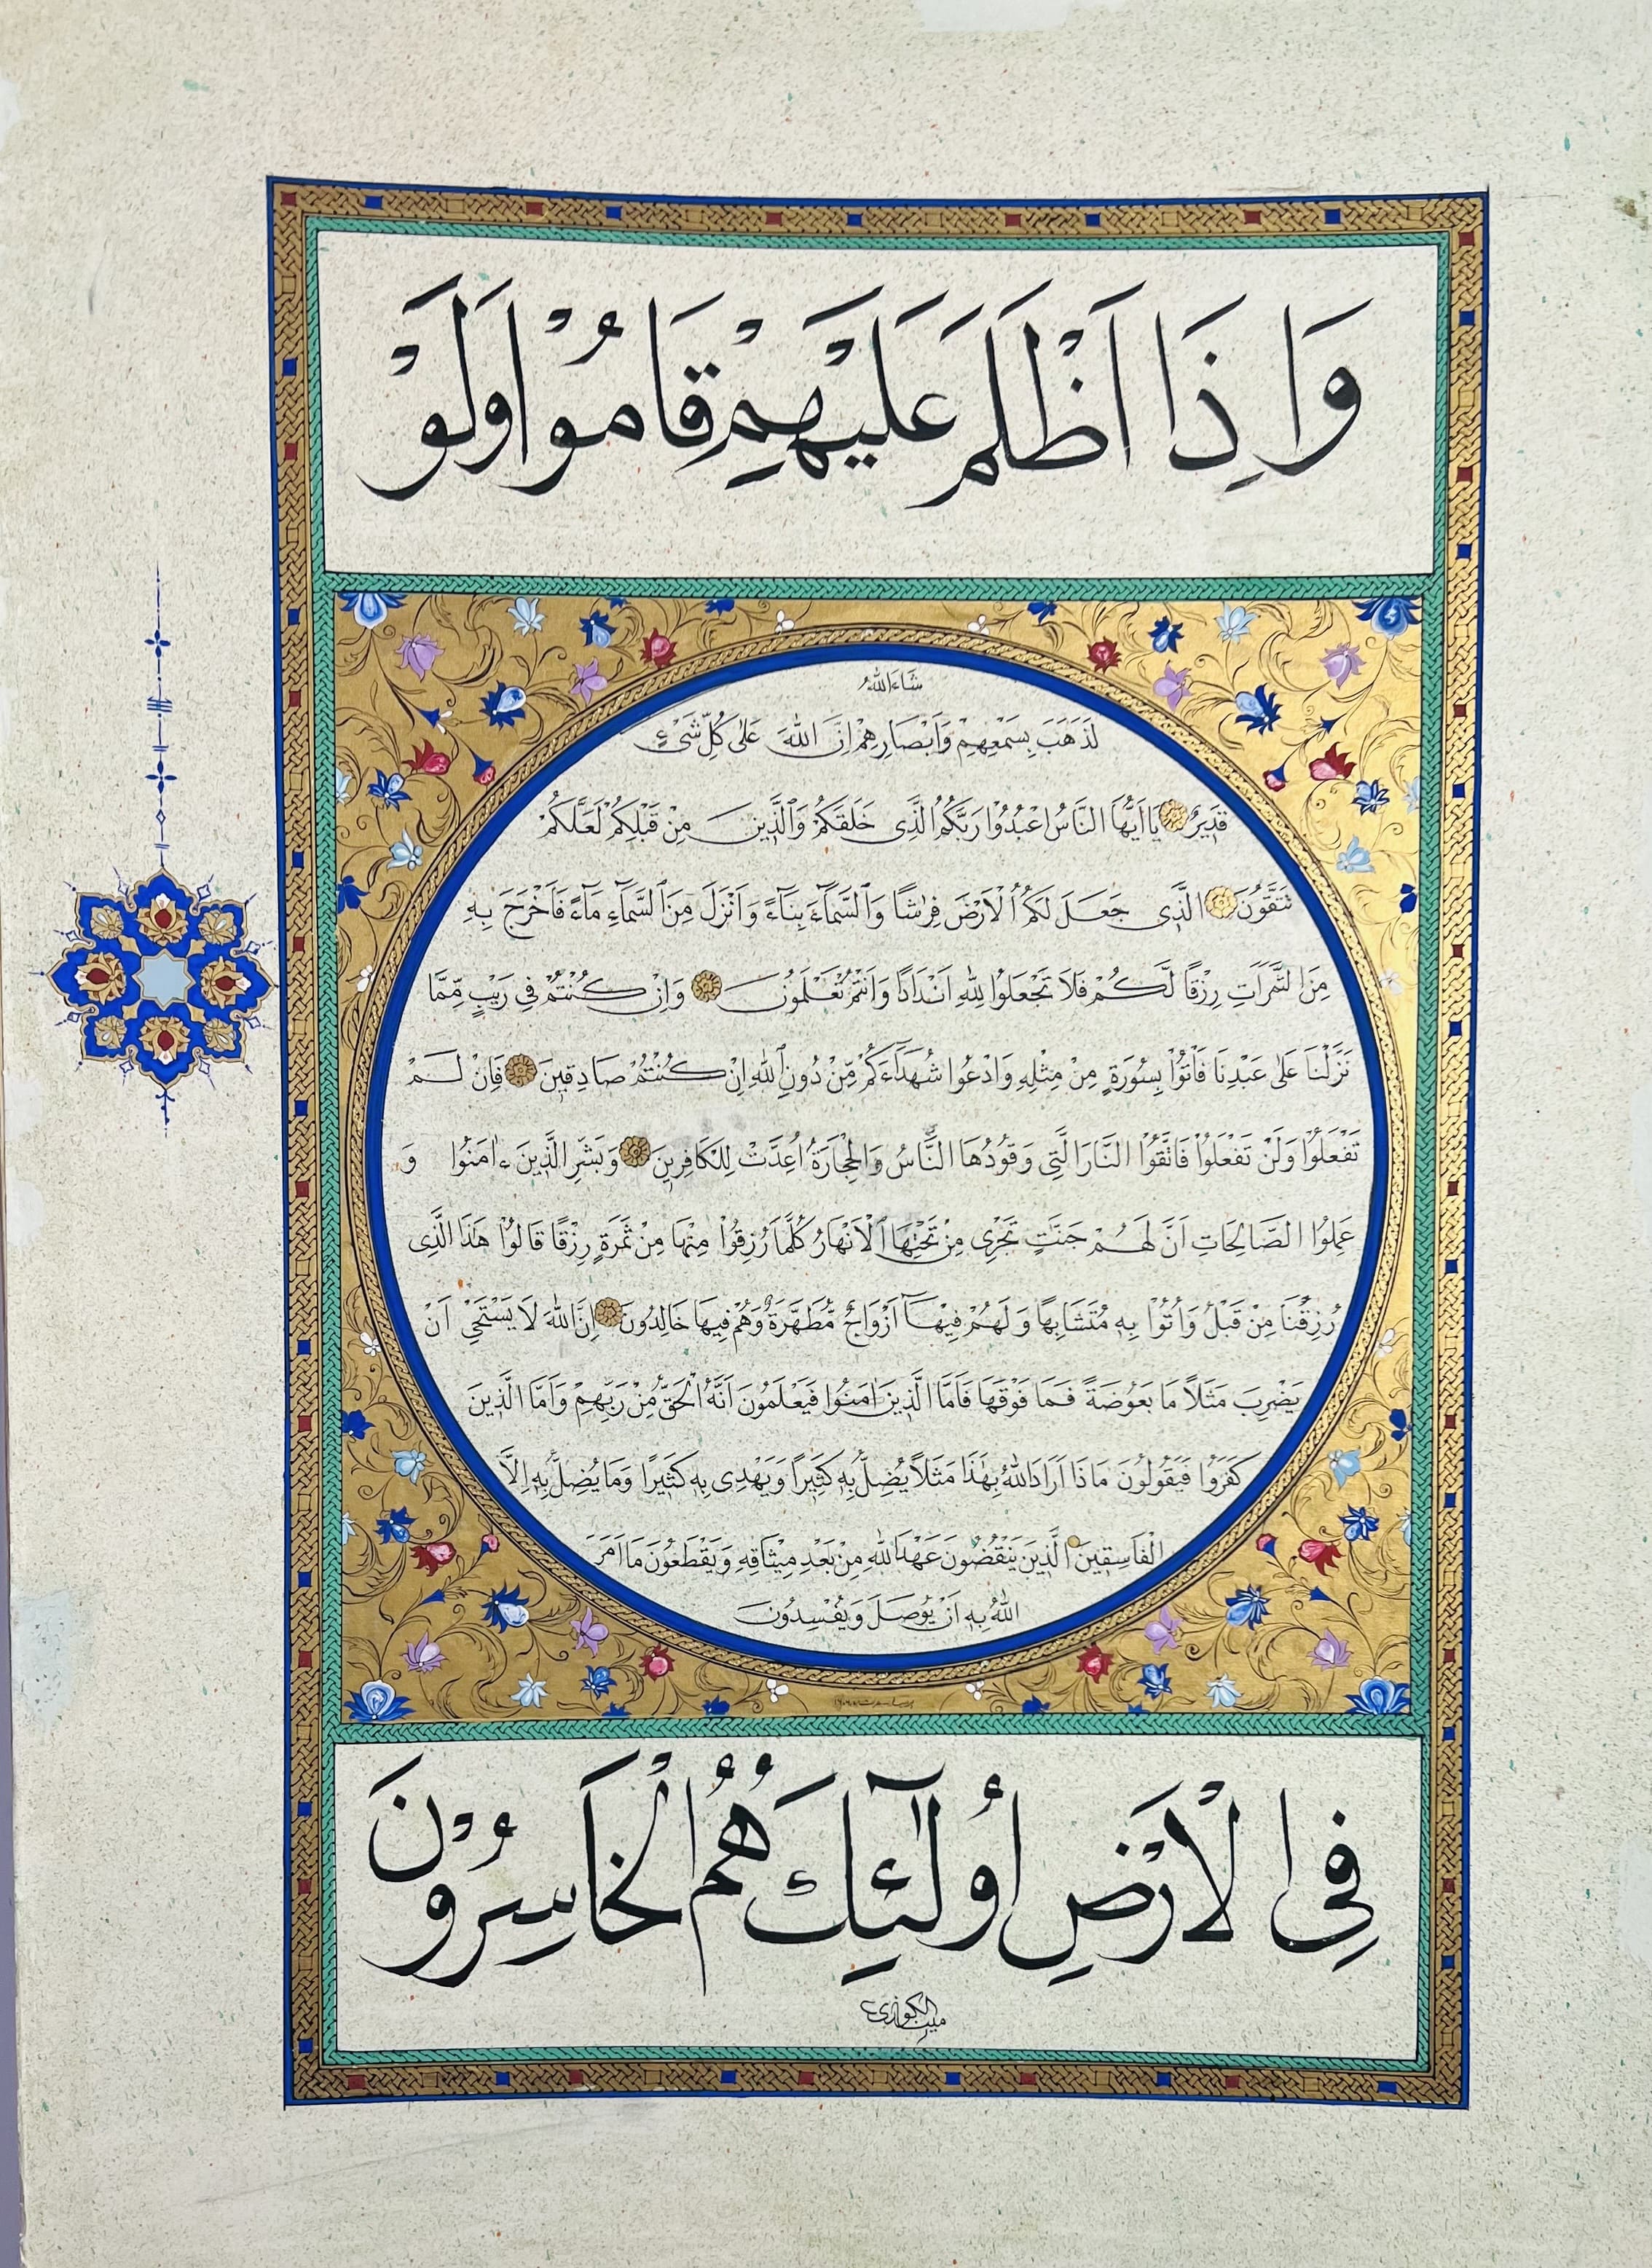 وَاِذَا اَظْلَمَ عَلَيْهِمْ قَامُوْا وَلَوْ
شَاءَ اللهُ
لَذَهَبَ بِسَمْعِهِمْ وَاَبْصَارِهِمْ اِنَّ اللهَ عَلٰى كُلِّ شَیْءٍ
قَدِيرٌ يَا اَيُّهَا النَّاسُ اعْبُدُوا رَبَّكُمُ الَّذِی خَلَقَكُمْ وَالَّذِينَ مِنْ قَبْلِكُمْ لَعَلَّكُمْ
تَتَّقُونَ الَّذِی جَعَلَ لَكُمُ الْاَرْضَ فِرٰشًا وَالسَّمَآءَ بِنَآءً وَاَنْزَلَ مِنَ السَّمَآءِ مَآءً فَاَخْرَجَ بِهِ
مِنَ الثَّمَرَاتِ رِزْقًا لَّكُمْ فَلَا تَجْعَلُوا لِلّٰهِ اَنْدَادًا وَاَنْتُمْ تَعْلَمُونَ وَاِنْ كُنْتُمْ فِی رَيْبٍ مِّمَّا
نَزَّلْنَا عَلٰى عَبْدِنَا فَاْتُوْا بِسُورَةٍ مِنْ مِثْلِهِ وَادْعُوا شُهَدَآءَكُمْ مِّنْ دُونِ اللهِ اِنْ كُنْتُمْ صَادِقِينَ فَاِنْ لَمْ
تَفْعَلُوْا وَلَنْ تَفْعَلُوْا فَاتَّقُوْا النَّارَ الَّتِی وَقُودُهَا النَّاسُ وَالْحِجَارَةُ اُعِدَّتْ لِلْكَافِرِينَ وَبَشِّرِ الَّذِينَ ءٰامَنُوْا وَ
عَمِلُوْا الصَّالِحَاتِ اَنَّ لَهُمْ جَنّٰتٍ تَجْرِی مِنْ تَحْتِهَا الْاَنْهَارُ كُلَّمَا رُزِقُوْا مِنْهَا مِنْ ثَمَرَةٍ رِزْقًا قَالُوْا هَذَا الَّذِی
رُزِقْنَا مِنْ قَبْلُ وَاُتُوْا بِهِ مُتَشَابِهًا وَلَهُمْ فِيْهَآ اَزْوَاجٌ مُّطَهَّرَةٌ وَهُمْ فِيهَا خَالِدُونَ اِنَّ اللهَ لَا يَسْتَحْیِ اَنْ
يَضْرِبَ مَثَلًا مَا بَعُوْضَةً فَمَا فَوْقَهَا فَاَمَّا الَّذِينَ اٰمَنُوا فَيَعْلَمُونَ اَنَّهُ الْحَقُّ مِنْ رَبِّهِمْ وَاَمَّا الَّذِينَ
كَفَرُوا فَيَقُولُونَ مَاذَا اَرَادَ اللهُ بِهٰذَا مَثَلًا يُضِلُّ بِهِ كَثِيرًا وَيَهْدِی بِهِ كَثِيرًا وَمَا يُضِلُّ بِهِ اِلَّا
الْفَاسِقِينَ الَّذِينَ يَنْقُضُونَ عَهْدَ اللهِ مِنْ بَعْدِ مِيْثَاقِهِ وَيَقْطَعُونَ مَا اَمَرَ
اللهُ بِهِ اَنْ يُوصَلَ وَيُفْسِدُونَ
فِی الْاَرْضِ اُولٰٓئِكَ هُمُ الْخَاسِرُوْنَ